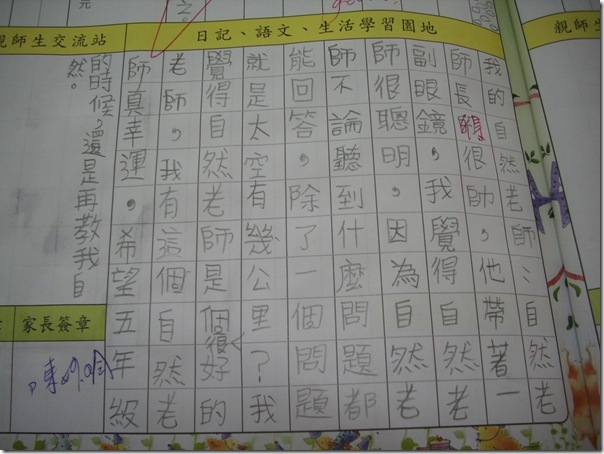 師生交流站
日記、語文、生活學習園地
親師
我的自然老師：自然老
師長得很帥，他帶著一
副眼鏡，我覺得自然老
師很聰明，因為自然老
師不論聽到什麼問題都
能回答，除了一個問題
就是太空有幾公里？我
覺得自然老師是個很好的
老師，我有這個自然老
師真幸運，希望五年級
的時候，還是再教我自
然。
家長簽章